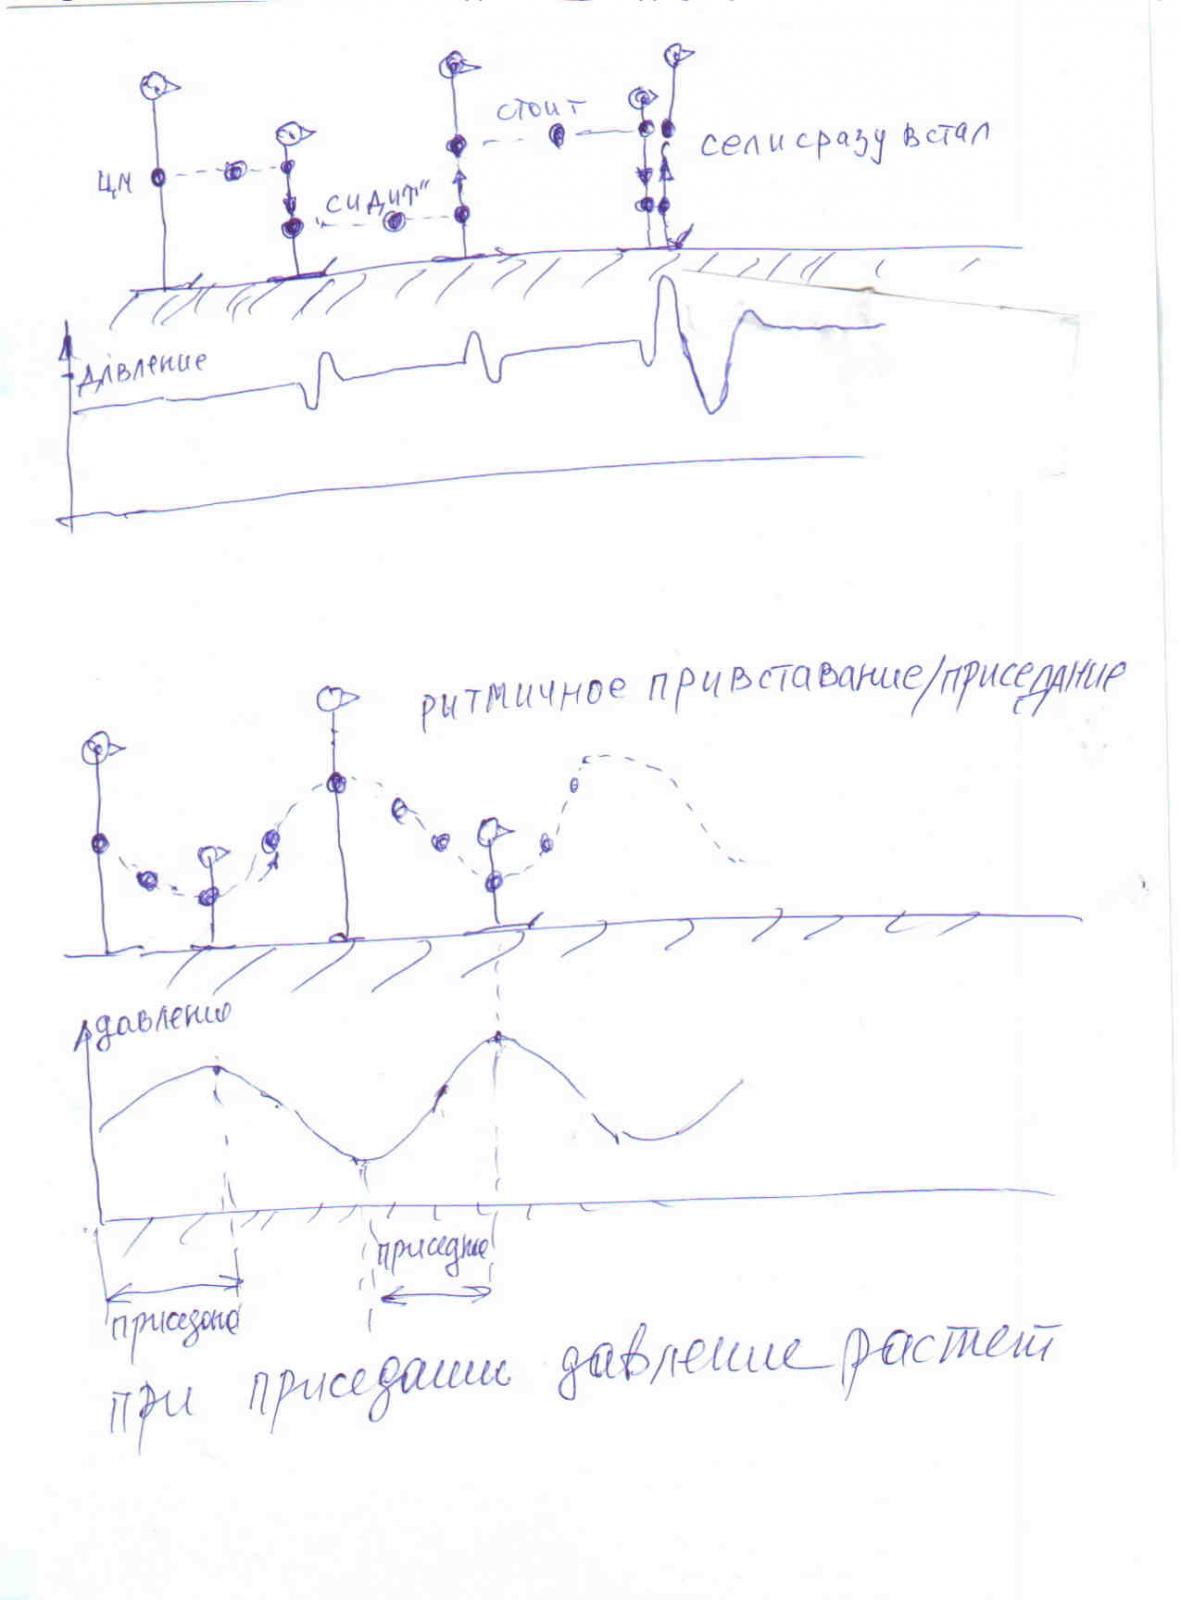 стоит
сел и сразу встал
цм
"сидит"
давление
ритмичное привставание/приседание
давление
приседание
при приседании давление растет